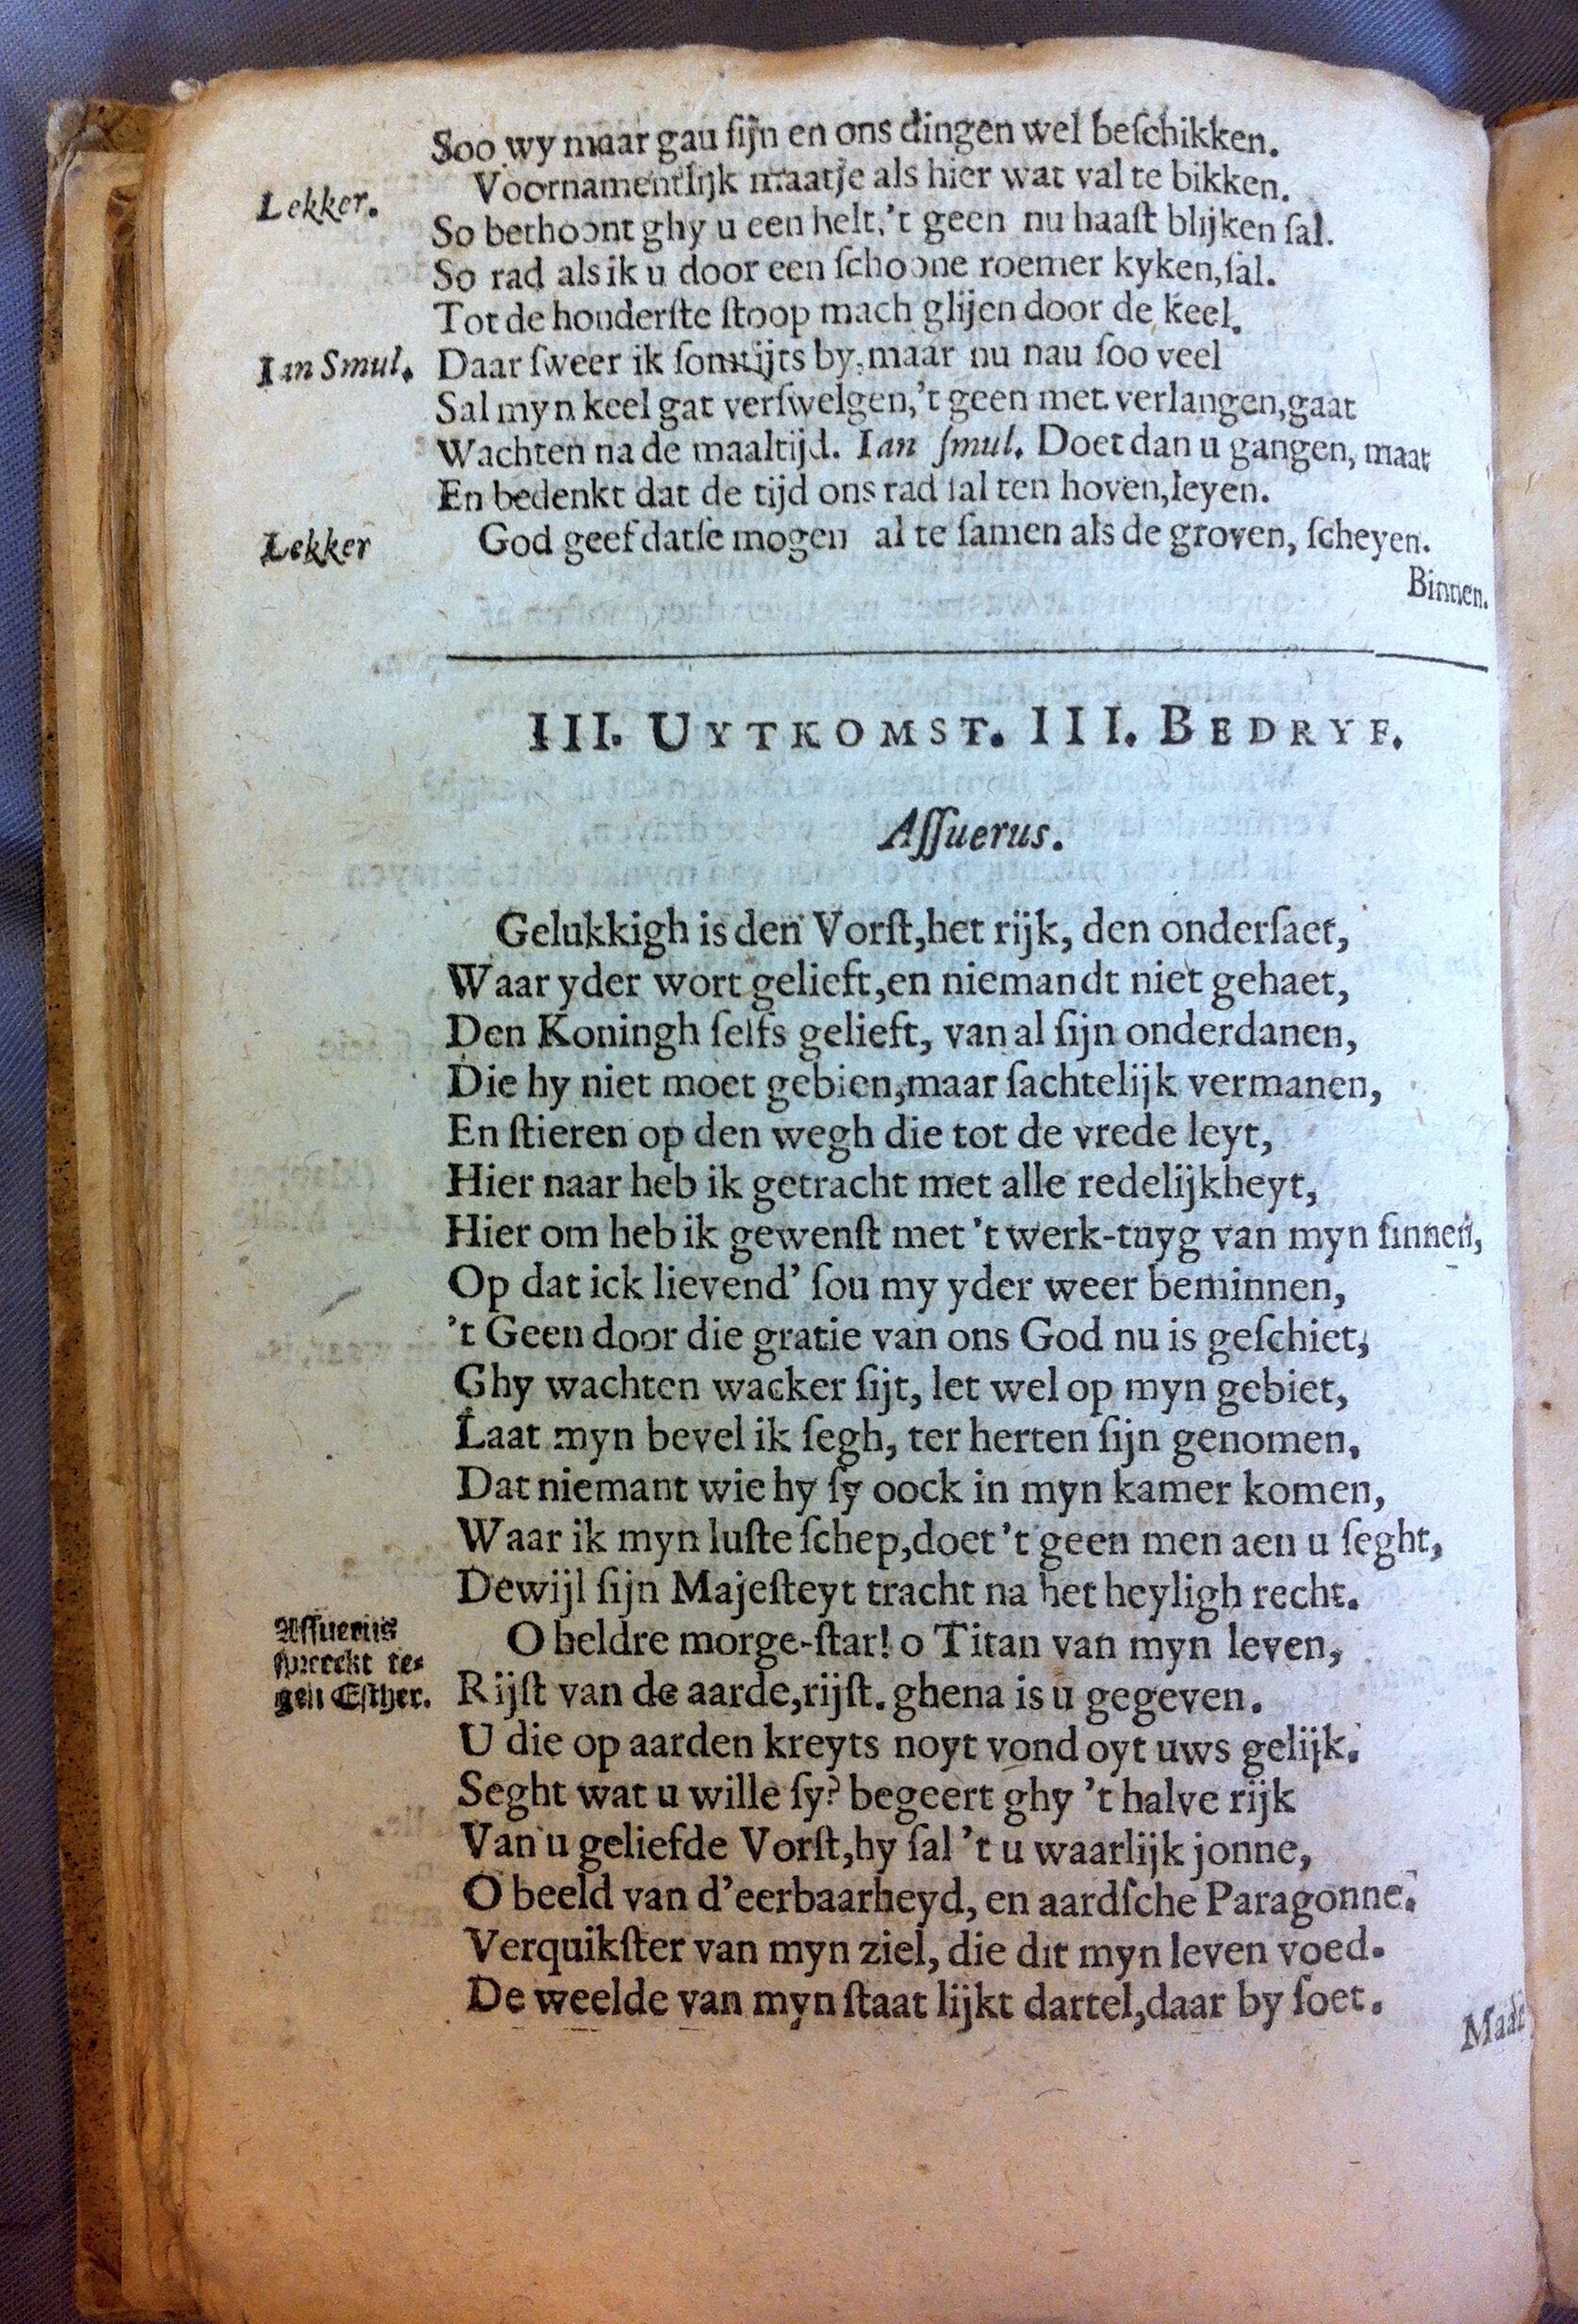 Soo wy maar gau ſijn en ons dingen wel beſchikken.
Lekker. Voornamentlijk maatje als hier wat val te bikken.
So bethoont ghy u een helt, 't geen nu haaſt blijken ſal.
So rad als ik u door een ſchoone roemer kyken, ſal.
Tot de honderſte ſtoop mach glijen door de keel.
Ian Smul. Daar ſweer ik ſomtijts by, maar nu nau ſoo veel
Sal myn keel gat verſwelgen, 't geen met verlangen, gaat
Wachten na de maaltijd. Ian ſmul. Doet dan u gangen, maat
En bedenkt dat de tijd ons rad ſal ten hoven, leyen.
Lekker God geef datſe mogen al te ſamen als de groven, ſcheyen.
Binnen.
III. UYTKOMST. III. BEDRYF.
Aſſuerus.
Gelukkigh is den Vorſt, het rijk, den onderſaet,
Waar yder wort gelieft, en niemandt niet gehaet,
Den Koningh ſelfs gelieft, van al ſijn onderdanen,
Die hy niet moet gebien, maar ſachtelijk vermanen,
En ſtieren op den wegh die tot de vrede leyt,
Hier naar heb ik getracht met alle redelijkheyt,
Hier om heb ik gewenſt met 't werk-tuyg van myn ſinnen,
Op dat ick lievend' ſou my yder weer beminnen,
't Geen door die gratie van ons God nu is geſchiet,
Ghy wachten wacker ſijt, let wel op myn gebiet,
Laat myn bevel ik ſegh, ter herten ſijn genomen,
Dat niemant wie hy ſy oock in myn kamer komen,
Waar ik myn luſte ſchep, doet 't geen men aen u ſeght,
Dewijl ſijn Majeſteyt tracht na het heyligh recht.
Aſſuerus ſpreeckt te- gen Eſther.
O heldre morge-ſtar! o Titan van myn leven,
Rijſt van de aarde, rijſt. ghena is u gegeven.
U die op aarden kreyts noyt vond oyt uws gelijk.
Seght wat u wille ſy? begeert ghy 't halve rijk
Van u geliefde Vorſt, hy ſal 't u waarlijk jonne,
O beeld van d'eerbaarheyd, en aardſche Paragonne.
Verquikſter van myn ziel, die dit myn leven voed.
De weelde van myn ſtaat lijkt dartel, daar by ſoet.